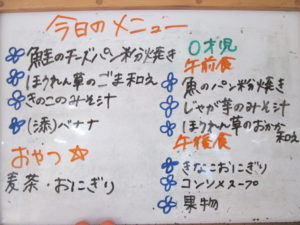 今日のメニュー
鮭のチーズパン粉焼き
ほうれん草のごま和え
きのこのみそ汁
(添)バナナ
おやつ
麦茶・おにぎり
0才児
午前食
魚のパン粉焼き
じゃが芋のみそ汁
ほうれん草のおかか
和え
午後食
きなこおにぎり
コンソメスープ
果物